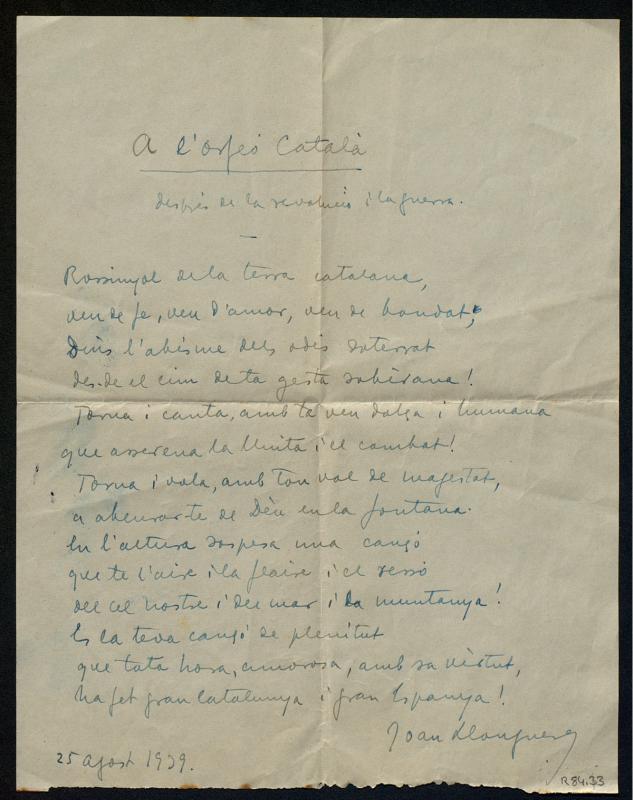 A l'Orfeó Català
després de la revolució i la guerra.
Rossinyol de la terra catalana,
veu de fe, veu d'amor, veu de bondat,
Dins l'abisme dels odis soterrat
des-de el cim de ta gesta sobirana!
Torna i canta, amb ta veu dolça i humana
que asserena la lluita i el combat!
Torna i vola, amb ton vol de magestat,
a abeurar-te de Déu en la fontana.
En l'altura sospesa una cançó
que te l'aire i la flaire i el ressó
del cel nostre i del mar i la muntanya!
Es la teva cançó de plenitut
que tota hora, amorosa, amb sa virtut,
ha fet gran Catalunya i gran Espanya!
Joan Llongueres
25 agost 1939.
R 84.33